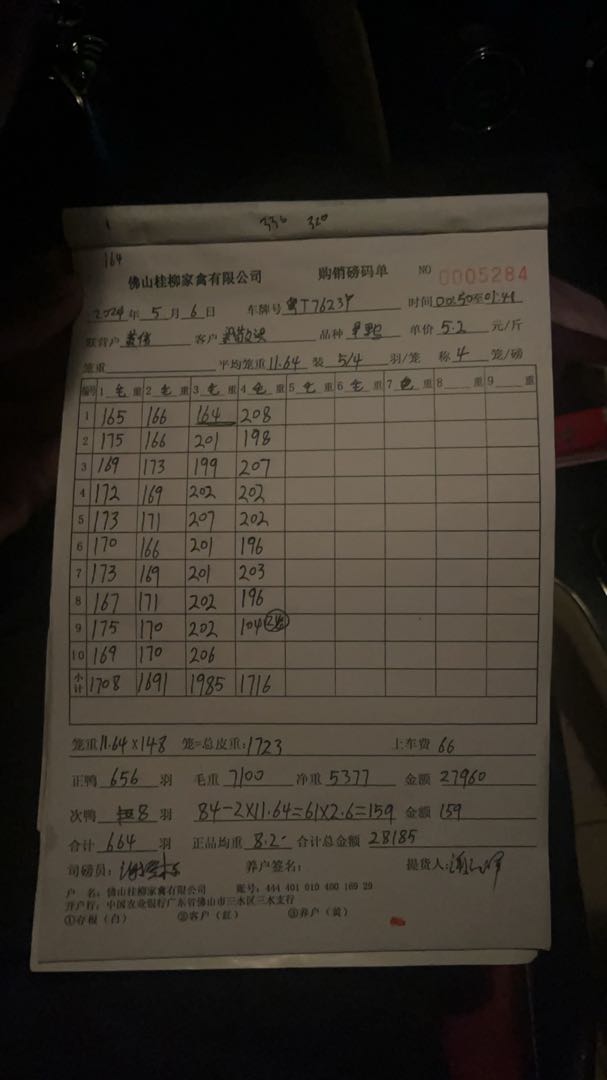 330 320
164
佛山桂柳家禽有限公司 购销磅码单 NO 0005284
2024 年 5 月 6 日 车牌号 粤T7623 时间 00:50至01:41
联营户 客户 品种 单价 5.2 元/斤
笼重 平均笼重 11.64 装 5/4 羽/笼 称 4 笼/磅
编号 1 毛 重 2 毛 重 3 毛 重 4 毛 重 5 毛 重 6 毛 重 7 色 重 8 重 9 重
1 165 166 164 208
2 175 166 201 198
3 169 173 199 207
4 172 169 202 202
5 173 171 207 202
6 170 166 201 196
7 173 169 201 203
8 167 171 202 196
9 175 170 202 104
10 169 170 206
小计 1708 1691 1985 1716
笼重 11.64×148 笼=总皮重: 1723 上车费 66
正鸭 656 羽 毛重 7100 净重 5377 金额 27960
次鸭 8 羽 84-2×11.64=61×2.6=159 金额 159
合计 664 羽 正品均重 8.2 合计总金额 28185
司磅员: 养户签名: 提货人:
户 名: 佛山桂柳家禽有限公司 账号: 444 401 010 400 169 29
开户行: 中国农业银行广东省佛山市三水区三水支行
①存根(白) ②客户(红) ③养户(黄)